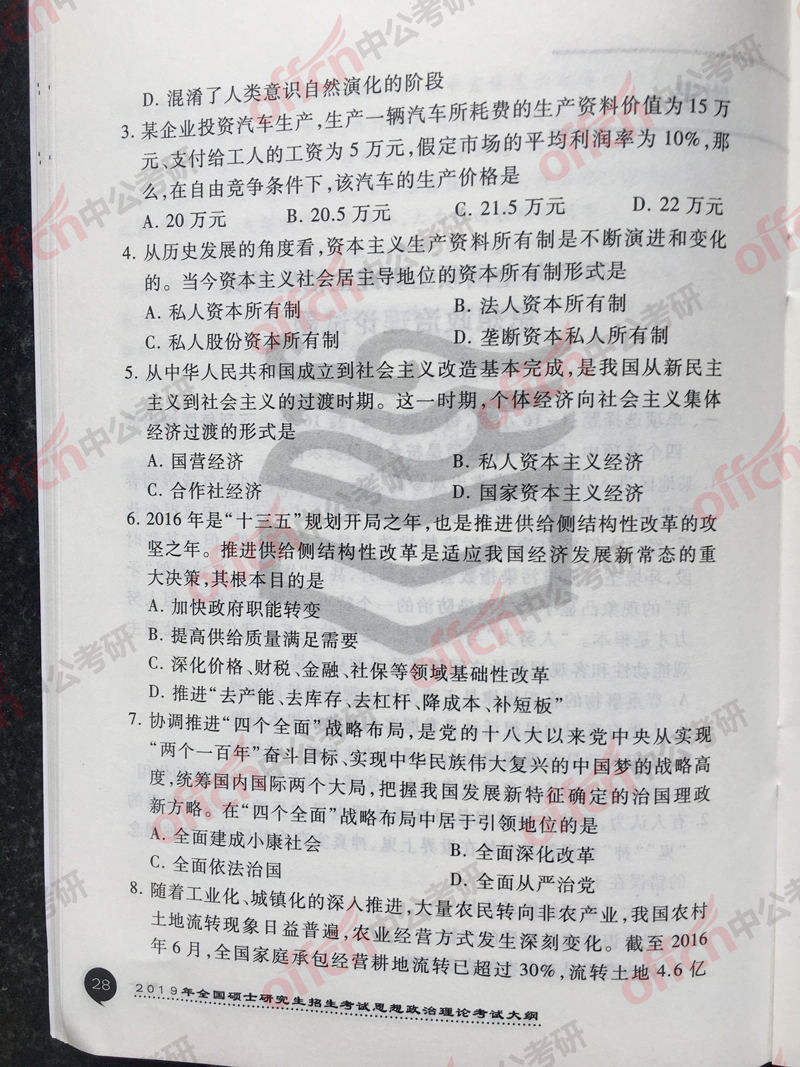 D. 混淆了人类意识自然演化的阶段
3. 某企业投资汽车生产,生产一辆汽车所耗费的生产资料价值为 15 万
元、支付给工人的工资为 5 万元,假定市场的平均利润率为 10%,那
么,在自由竞争条件下,该汽车的生产价格是
A. 20 万元 B. 20.5 万元 C. 21.5 万元 D. 22 万元
4. 从历史发展的角度看,资本主义生产资料所有制是不断演进和变化
的。当今资本主义社会居主导地位的资本所有制形式是
A. 私人资本所有制 B. 法人资本所有制
C. 私人股份资本所有制 D. 垄断资本私人所有制
5. 从中华人民共和国成立到社会主义改造基本完成,是我国从新民主
主义到社会主义的过渡时期。这一时期,个体经济向社会主义集体
经济过渡的形式是
A. 国营经济 B. 私人资本主义经济
C. 合作社经济 D. 国家资本主义经济
6. 2016 年是“十三五”规划开局之年,也是推进供给侧结构性改革的攻
坚之年。推进供给侧结构性改革是适应我国经济发展新常态的重
大决策,其根本目的是
A. 加快政府职能转变
B. 提高供给质量满足需要
C. 深化价格、财税、金融、社保等领域基础性改革
D. 推进“去产能、去库存、去杠杆、降成本、补短板”
7. 协调推进“四个全面”战略布局,是党的十八大以来党中央从实现
“两个一百年”奋斗目标、实现中华民族伟大复兴的中国梦的战略高
度,统筹国内国际两个大局,把握我国发展新特征确定的治国理政
新方略。在“四个全面”战略布局中居于引领地位的是
A. 全面建成小康社会 B. 全面深化改革
C. 全面依法治国 D. 全面从严治党
8. 随着工业化、城镇化的深入推进,大量农民转向非农产业,我国农村
土地流转现象日益普遍,农业经营方式发生深刻变化。截至 2016
年 6 月,全国家庭承包经营耕地流转已超过 30%,流转土地 4.6 亿
28
2019年全国硕士研究生招生考试思想政治理论考试大纲
offcn中公考研